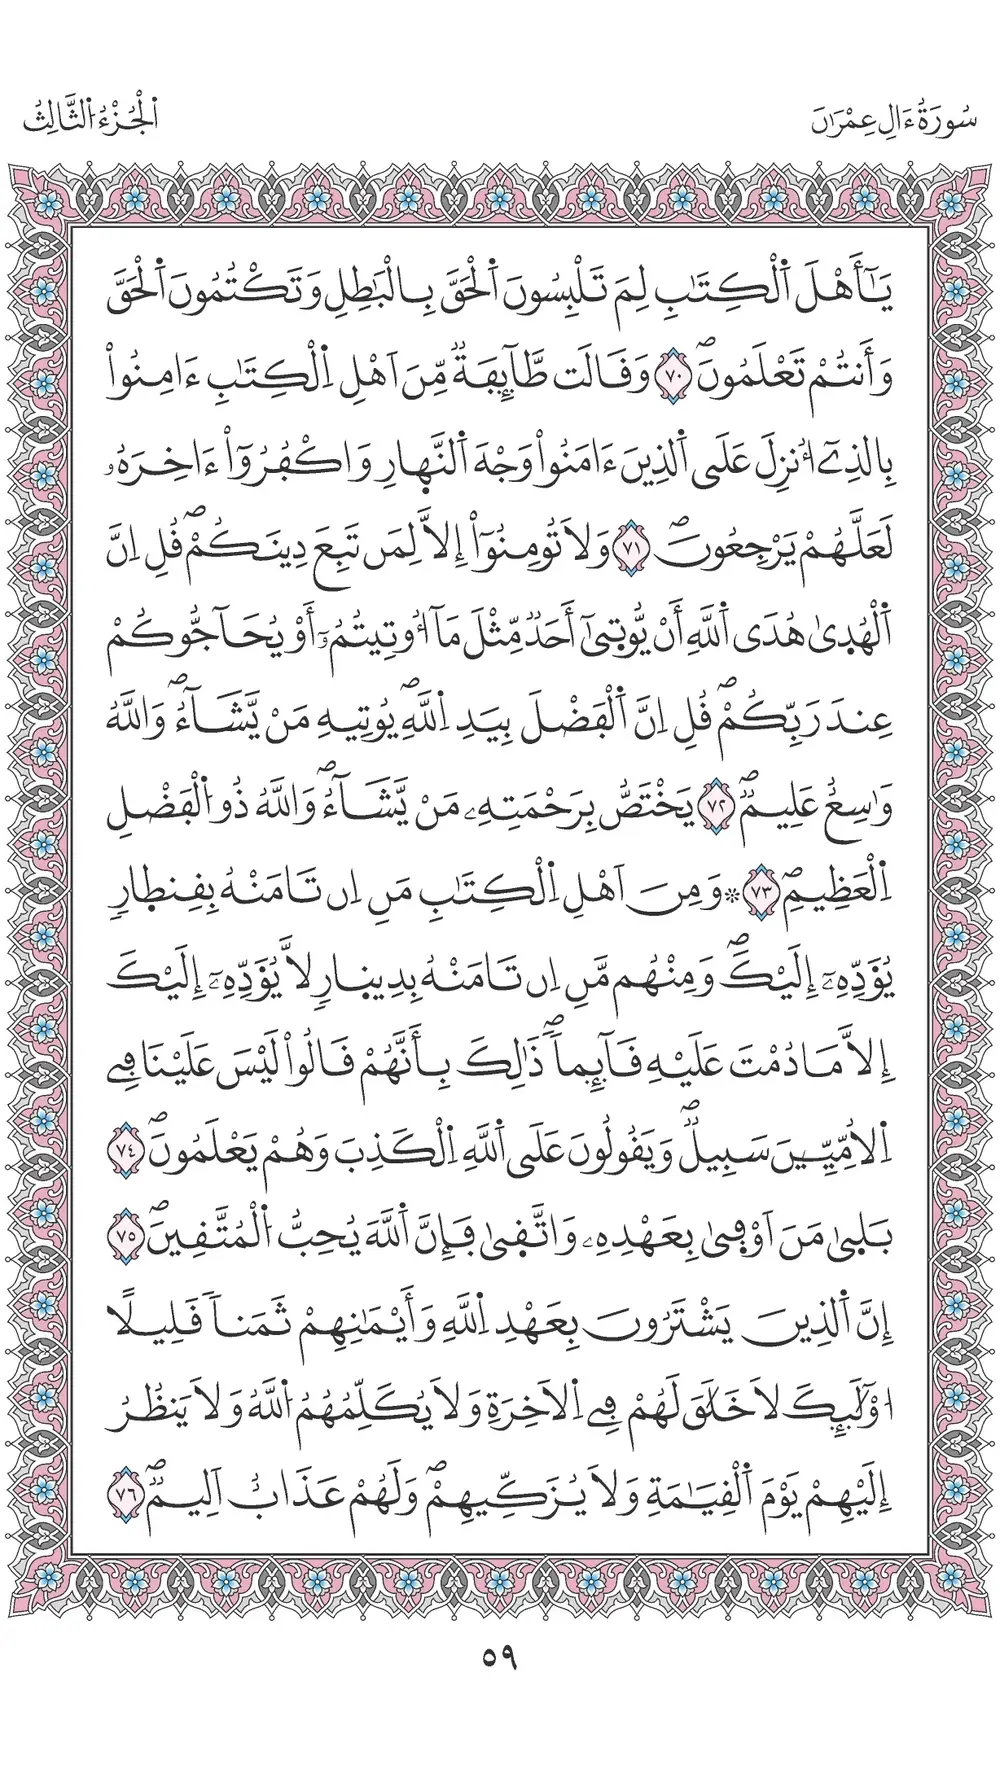 سُورَةُ ءَالِ عِمْرَٰنَ
اَ۬لْجُزْءُ اُ۬لثَّالِثُ
يَٰٓأَهْلَ اَ۬لْكِتَٰبِ لِمَ تَلْبِسُونَ اَ۬لْحَقَّ بِالْبَٰطِلِ وَتَكْتُمُونَ اَ۬لْحَقَّ
وَأَنتُمْ تَعْلَمُونَۖ ٧٠ وَقَالَت طَّآئِفَةٞ مِّنَ اَهْلِ اِ۬لْكِتَٰبِ ءَامِنُواْ
بِالذِےٓ أُنزِلَ عَلَي اَ۬لذِينَ ءَامَنُواْ وَجْهَ اَ۬لنَّه۪ارِ وَاكْفُرُوٓاْ ءَاخِرَهُۥ
لَعَلَّهُمْ يَرْجِعُونَۖ ٧١ وَلَا تُومِنُوٓاْ إِلَّا لِمَن تَبِعَ دِينَكُمْۖ قُلِ اِنَّ
اَ۬لْهُد۪يٰ هُدَي اَ۬للَّهِ أَنْ يُّوت۪يٰٓ أَحَدٞ مِّثْلَ مَآ أُوتِيتُمُۥٓ أَوْ يُحَآجُّوكُمْ
عِندَ رَبِّكُمْۖ قُلِ اِنَّ اَ۬لْفَضْلَ بِيَدِ اِ۬للَّهِۖ يُوتِيهِ مَنْ يَّشَآءُۖ وَاللَّهُ
وَٰسِعٌ عَلِيمٞۖ ٧٢ يَخْتَصُّ بِرَحْمَتِهِۦ مَنْ يَّشَآءُۖ وَاللَّهُ ذُو اُ۬لْفَضْلِ
اِ۬لْعَظِيمِۖ ٧٣ ۞وَمِنَ اَهْلِ اِ۬لْكِتَٰبِ مَنِ اِن تَامَنْهُ بِقِنط۪ارٖ
يُؤَدِّهِۦٓ إِلَيْكَۖ وَمِنْهُم مَّنِ اِن تَامَنْهُ بِدِين۪ارٖ لَّا يُؤَدِّهِۦٓ إِلَيْكَ
إِلَّا مَا دُمْتَ عَلَيْهِ قَآئِماٗۖ ذَٰلِكَ بِأَنَّهُمْ قَالُواْ لَيْسَ عَلَيْنَا فِے
اِ۬لُامِّيِّـۧنَ سَبِيلٞۖ وَيَقُولُونَ عَلَي اَ۬للَّهِ اِ۬لْكَذِبَ وَهُمْ يَعْلَمُونَۖ ٧٤
بَل۪يٰ مَنَ اَوْف۪يٰ بِعَهْدِهِۦ وَاتَّق۪يٰ فَإِنَّ اَ۬للَّهَ يُحِبُّ اُ۬لْمُتَّقِينَۖ ٧٥
إِنَّ اَ۬لذِينَ يَشْتَرُونَ بِعَهْدِ اِ۬للَّهِ وَأَيْمَٰنِهِمْ ثَمَناٗ قَلِيلًا
ا۟وْلَٰٓئِكَ لَا خَلَٰقَ لَهُمْ فِے اِ۬لَاخِرَةِ وَلَا يُكَلِّمُهُمُ اُ۬للَّهُ وَلَا يَنظُرُ
إِلَيْهِمْ يَوْمَ اَ۬لْقِيَٰمَةِ وَلَا يُزَكِّيهِمْۖ وَلَهُمْ عَذَابٌ اَلِيمٞۖ ٧٦
٥٩